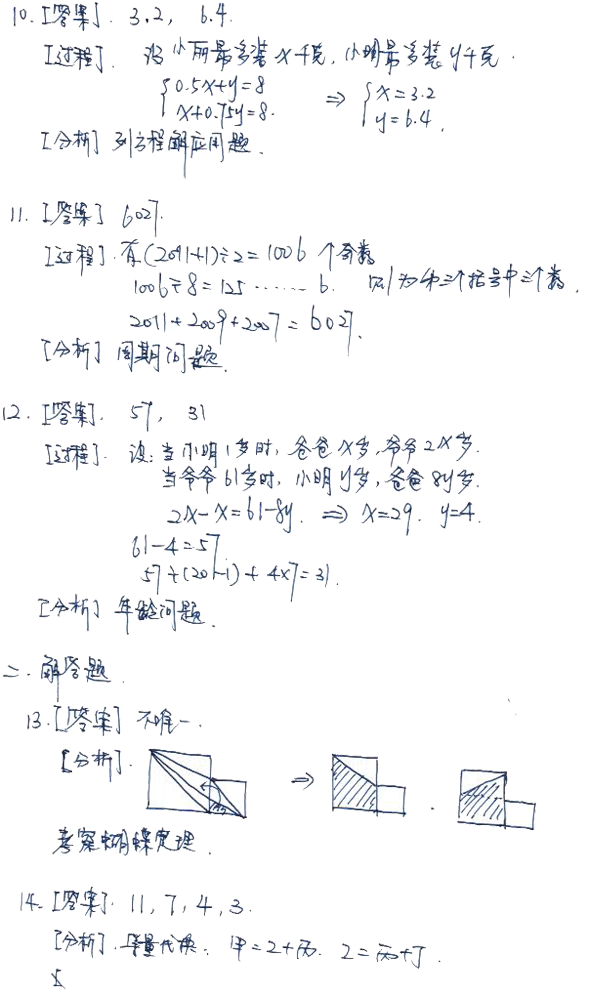 10. [答案]. 3.2, 6.4.
[过程]. 设小丽最多装x千克, 小明最多装y千克.
{0.5x+y=8 x+0.75y=8. ⇒ {x=3.2 y=6.4.
[分析] 列方程解应用题.
11. [答案] 6027.
[过程]. 有(2011+1)÷2=1006 个奇数
1006÷8=125……6. 则为第三个括号中三个数.
2011+2009+2007=6027.
[分析] 周期问题.
12. [答案]. 57, 31
[过程]. 设: 当小明1岁时, 爸爸x岁, 爷爷2x岁.
当爷爷61岁时, 小明y岁, 爸爸8y岁.
2x-x=61-8y. ⇒ x=29. y=4.
61-4=57.
57÷(20-1)+4×7=31.
[分析] 年龄问题.
二. 解答题.
13. [答案] 不唯一.
[分析]. ⇒ .
考察蝴蝶定理.
14. [答案]. 11, 7, 4, 3.
[分析]. 等量代换: 甲=乙+丙. 乙=丙+丁.